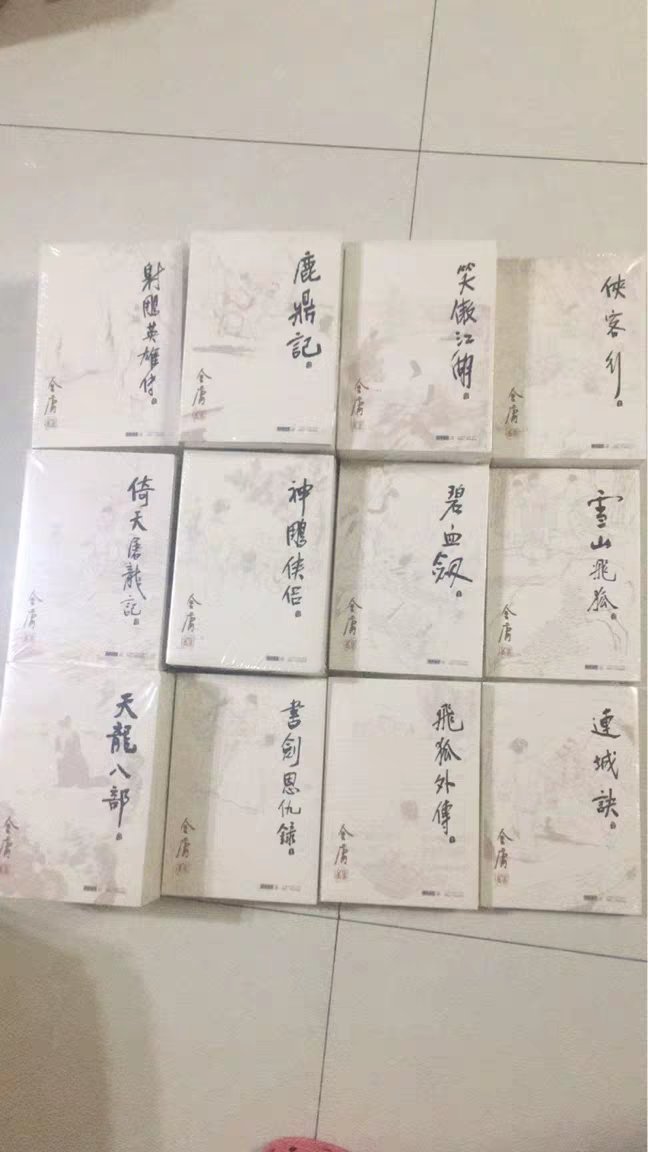 射鵰英雄傳
金庸
鹿鼎記
金庸
笑傲江湖
金庸
俠客行
金庸
倚天屠龍記
金庸
神鵰俠侶
金庸
碧血劍
金庸
雪山飛狐
金庸
天龍八部
金庸
書劍恩仇錄
金庸
飛狐外傳
金庸
連城訣
金庸